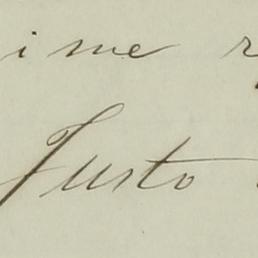 ime
Justo